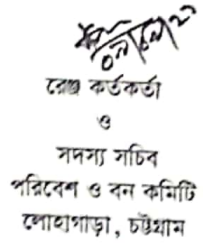 রেঞ্জ কর্তকর্তা
ও
সদস্য সচিব
পরিবেশ ও বন কমিটি
লোহাগাড়া, চট্টগ্রাম